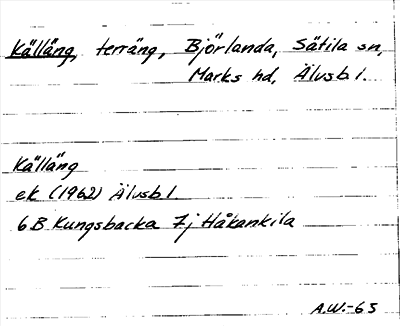 Källäng, terräng, Björlanda, Sätila sn,
Marks hd, Älvsb l.
Källäng
ek (1962) Älvsb l
6 B Kungsbacka 7 j Håkankila
A.W.-65